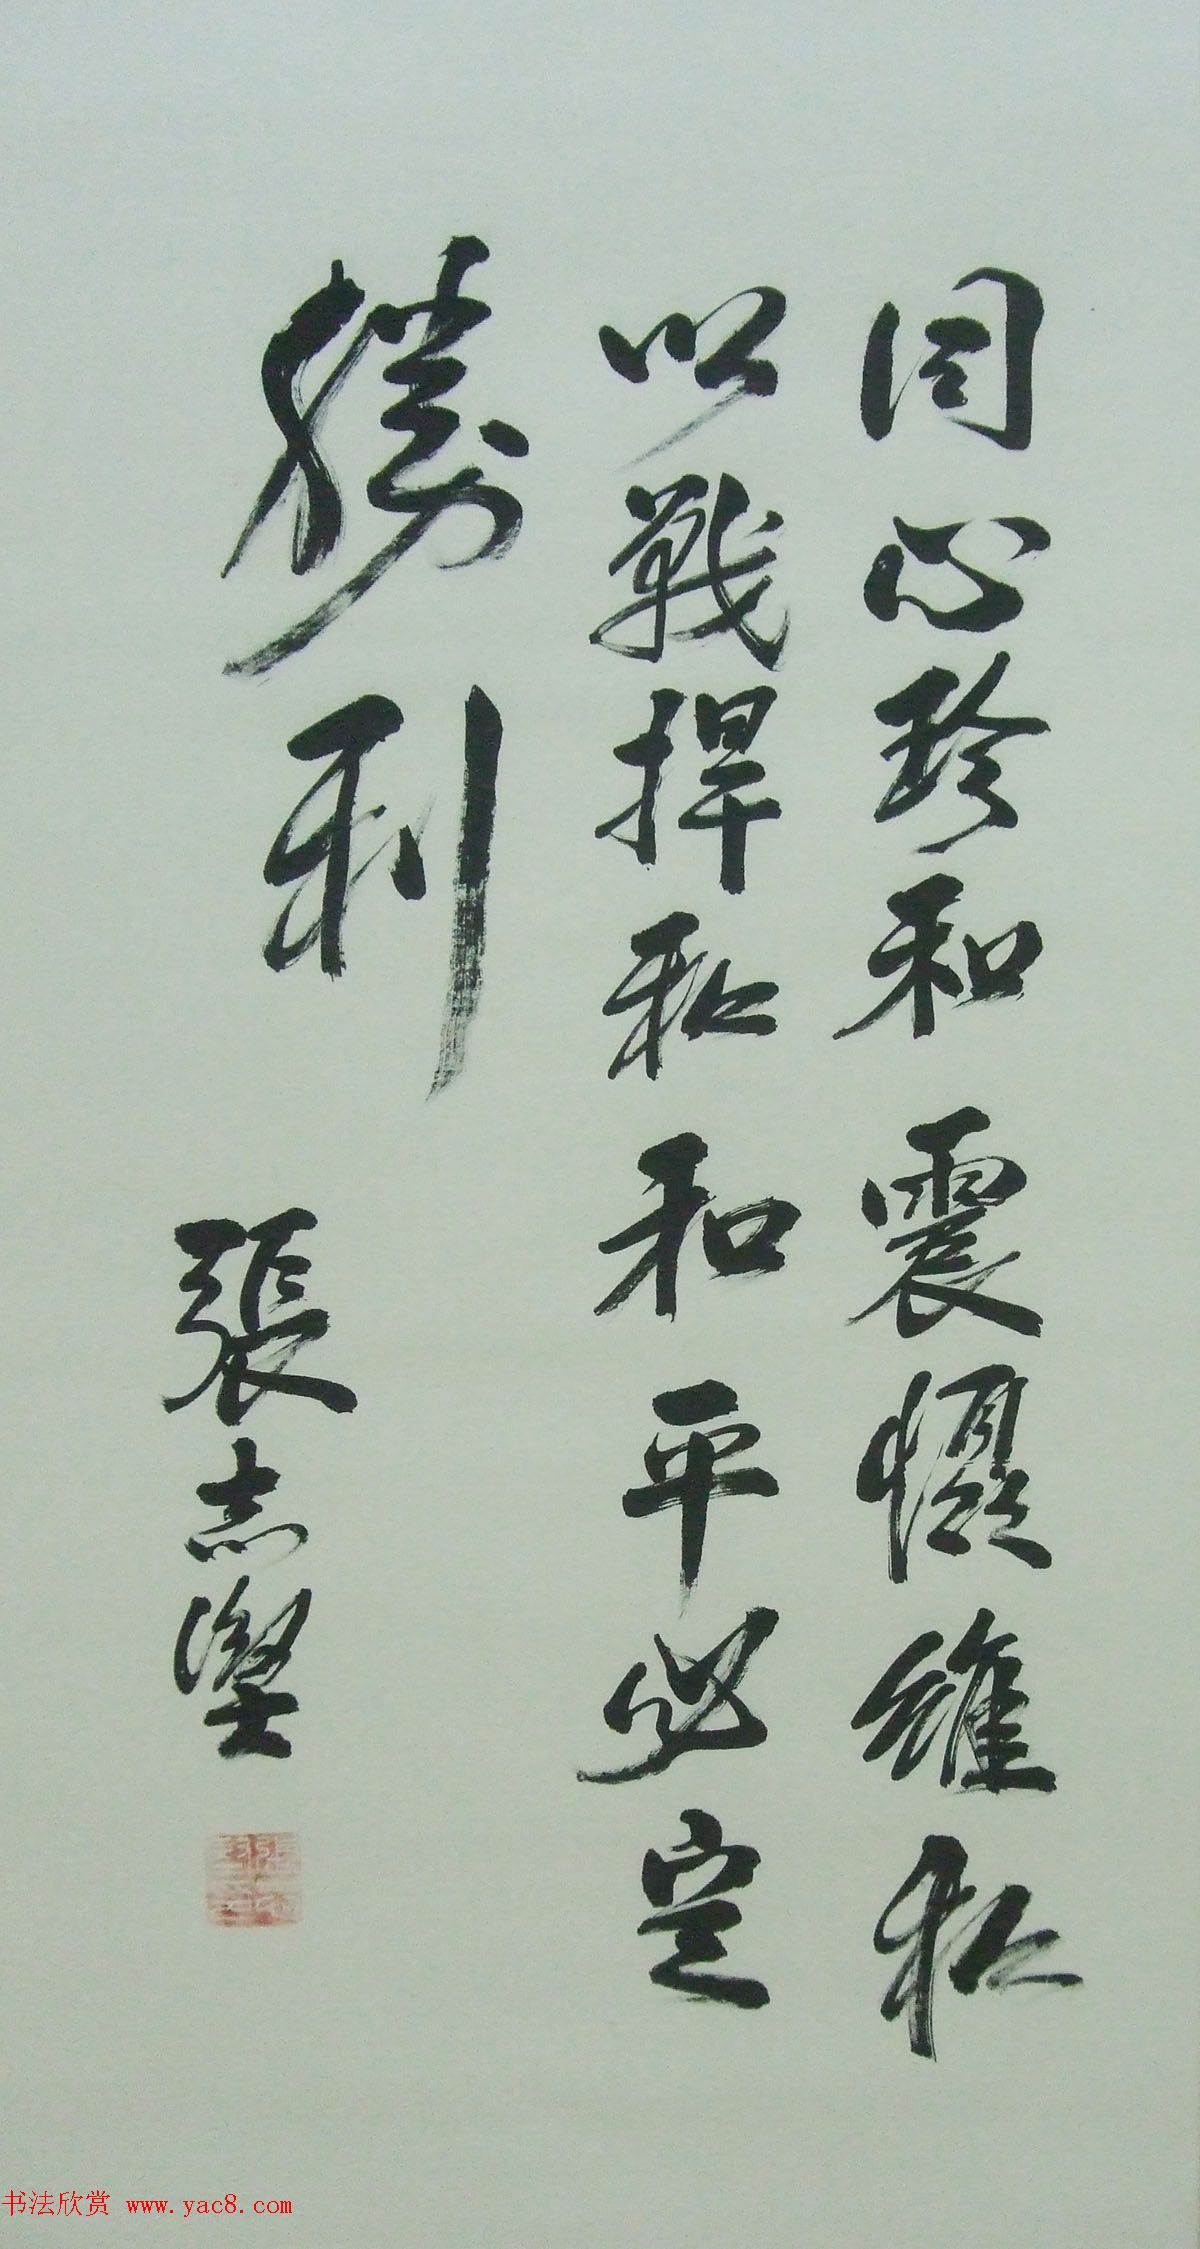 同心珍和震慑維和
以戰捍和和平必定
勝利
張志
书法欣赏 www.yac8.com